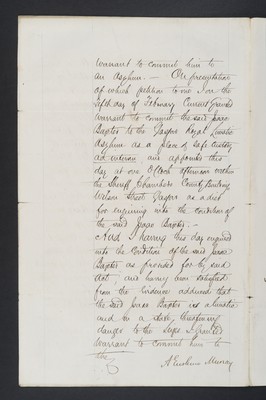 Warrant to commit him to
an Asylum. — On presentation
of which petition to me I on the
fifth day of February Current granted
Warrant to commit the said Isaac
Baxter to the Glasgow Royal Lunatic
Asylum as a place of safe custody
ad interim, and appointed this
day at one O'Clock afternoon within
the Sheriff Chambers County Buildings
Wilson Street Glasgow as a diet
for enquiring into the condition of
the said Isaac Baxter. —
And I having this day enquired
into the Condition of the said Isaac
Baxter as provided for by said
Act and having been satisfied
from the Evidence adduced that
the said Isaac Baxter is a lunatic
and in a state threatening
danger to the lieges I granted
Warrant to Commit him to
the
Murray